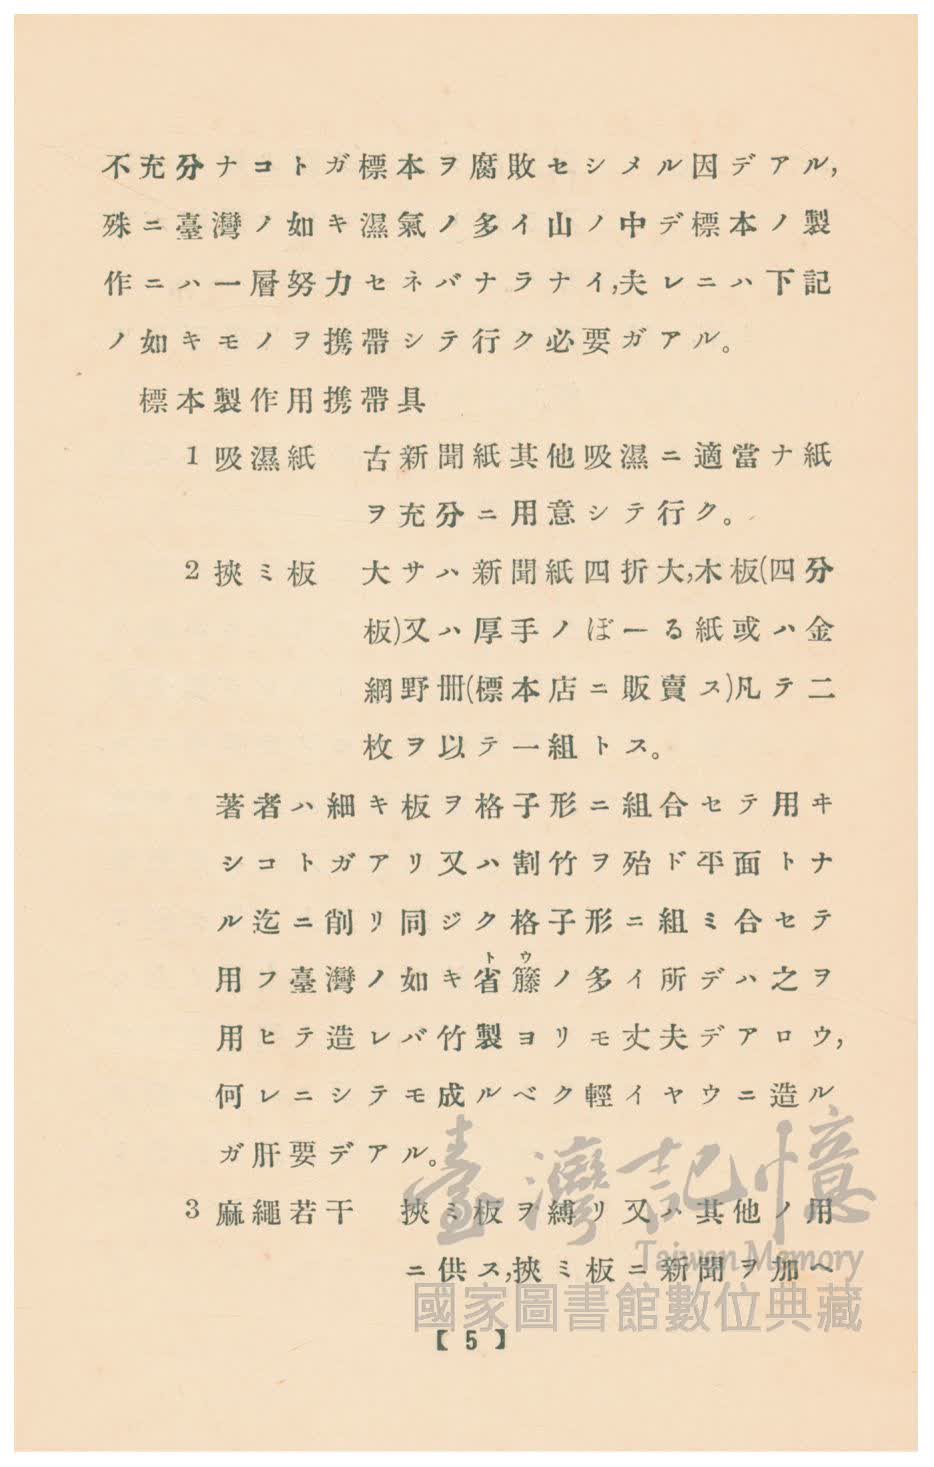 不充分ナコトガ標本ヲ腐敗セシメル因デアル,
殊ニ臺灣ノ如キ濕氣ノ多イ山ノ中デ標本ノ製
作ニハ一層努力セネバナラナイ,夫レニハ下記
ノ如キモノヲ携帶シテ行ク必要ガアル。
標本製作用携帶具
1 吸濕紙 古新聞紙其他吸濕ニ適當ナ紙
ヲ充分ニ用意シテ行ク。
2 挾ミ板 大サハ新聞紙四折大,木板(四分
板)又ハ厚手ノぼーる紙或ハ金
網野冊(標本店ニ販賣ス)凡テ二
枚ヲ以テ一組トス。
著者ハ細キ板ヲ格子形ニ組合セテ用ヰ
シコトガアリ又ハ割竹ヲ殆ド平面トナ
ル迄ニ削リ同ジク格子形ニ組ミ合セテ
トウ
用フ臺灣ノ如キ省籐ノ多イ所デハ之ヲ
用ヒテ造レバ竹製ヨリモ丈夫デアロウ,
何レニシテモ成ルベク輕イヤウニ造ル
ガ肝要デアル。
3 麻繩若干 挾ミ板ヲ縛リ又ハ其他ノ用
ニ供ス,挾ミ板ニ新聞ヲ加ヘ
【5】
臺灣記憶
Taiwan Memory
國家圖書館數位典藏